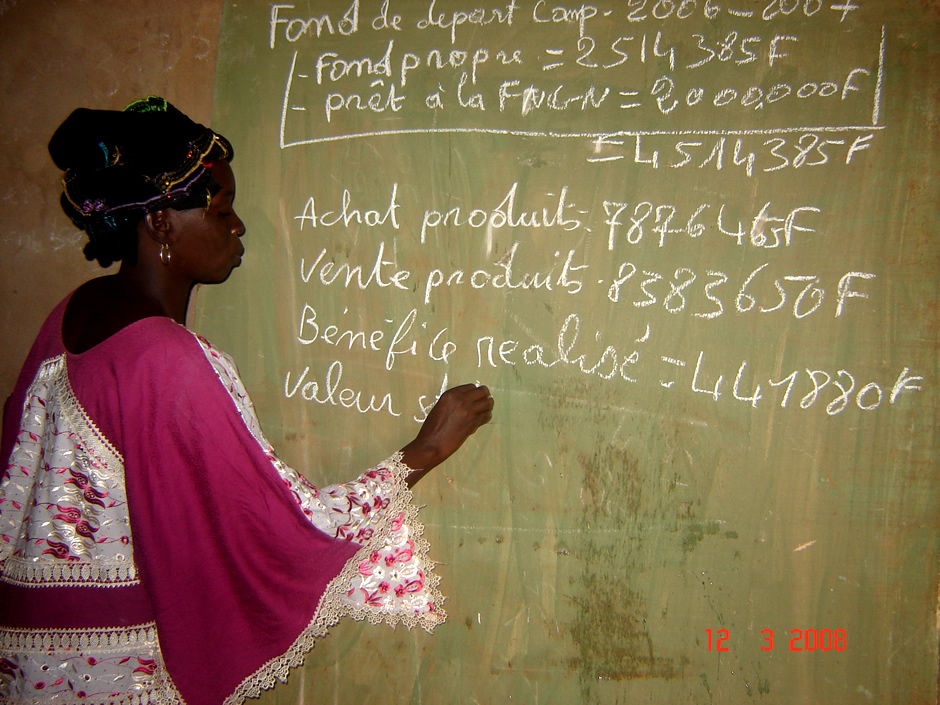 Fond de depart Camp. 2006-2007
- Fond propre = 2514385F
- prêt à la FNGN = 2000.000F
= 4514385F
Achat produits. 7876465F
Vente produits. 8383650F
Bénéfice realisé = 441880F
Valeur s
12 3 2008